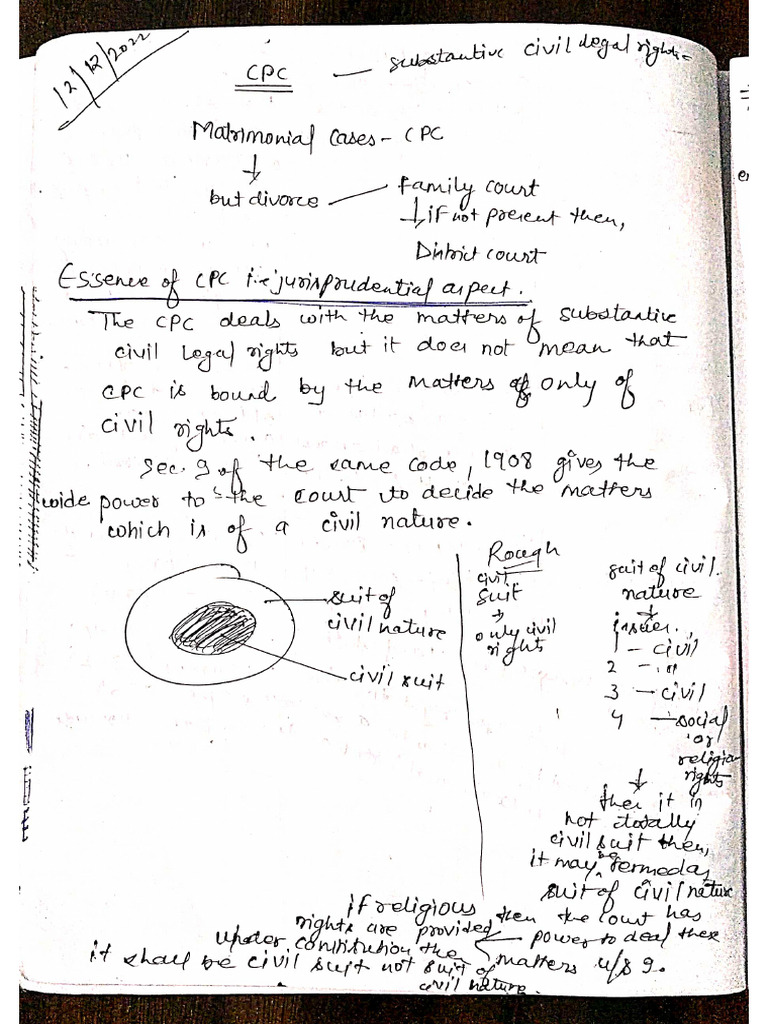 12/12/2022
CPC — substantive civil legal rights
Matrimonial cases - CPC
but divorce — Family court
if not present then,
District court
Essence of CPC i.e jurisprudential aspect.
The CPC deals with the matters of substantive
civil legal rights but it does not mean that
CPC is bound by the matters of only of
civil rights.
Sec. 9 of the same code, 1908 gives the
wide power to the court to decide the matters
which is of a civil nature.
suit of
civil nature
civil suit
Rough
civil
suit
only civil
rights
suit of civil
nature
issues.
1 - civil
2 - "
3 - civil
4 - social
or
religion
rights
then it is
not totally
civil suit then,
it may be termed as
suit of civil nature
if religious
rights are provided
under constitution the
it shall be civil suit not suit of
civil nature.
then the court has
power to deal these
matters u/s 9.